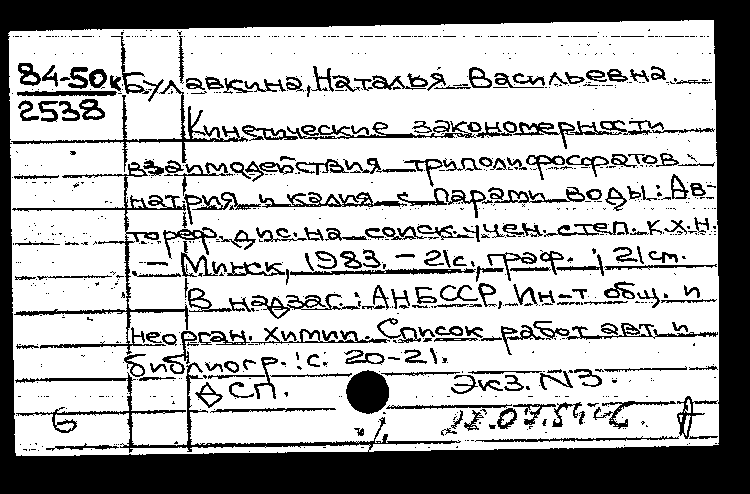 84-50к Булавкина, Наталья Васильевна.
2538
Кинетические закономерности
взаимодействия триполифосфатов
натрия и калия с парами воды: Ав-
тореф. дис. на соиск. учен. степ. к.х.н.
. — Минск, 1983. — 21с., граф. ; 21см.
В надзаг.: АН БССР, Ин-т общ. и
неорган. химии. Список работ авт. и
библиогр.: с. 20-21.
СП. Экз. N3.
6 А